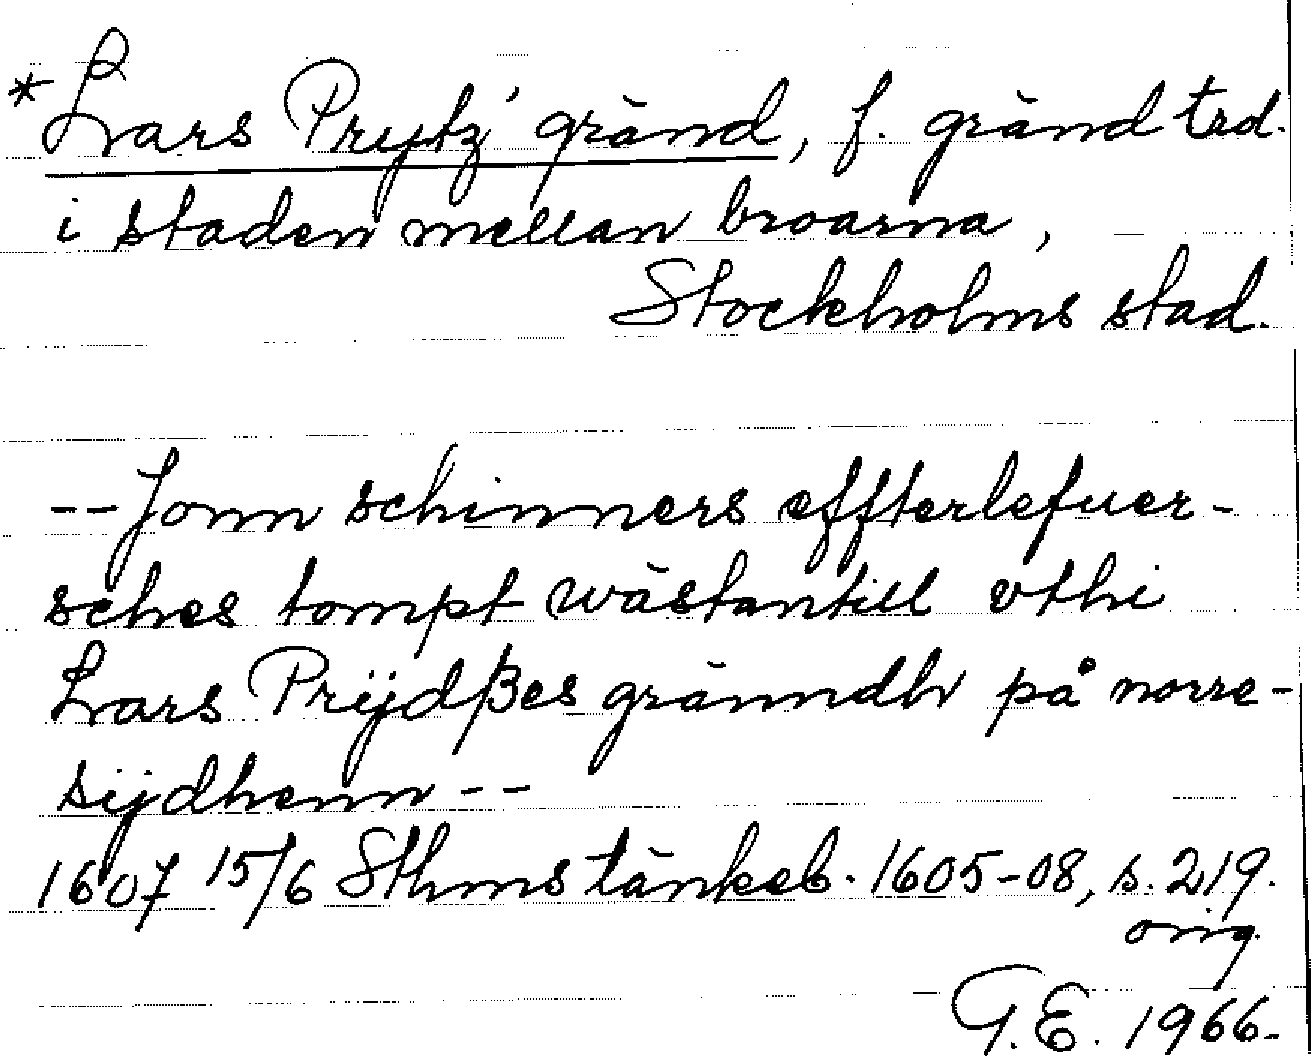 *Lars Prytz' gränd, f. gränd trd.
i staden mellan broarna,
Stockholms stad.
--Jonn schinners effterlefuer-
sches tompt wästantill vthi
Lars Prijdßes gränndh på norre-
sijdhenn--
1607 15/6 Sthms tänkeb. 1605-08, s. 219.
orig.
G.E. 1966.